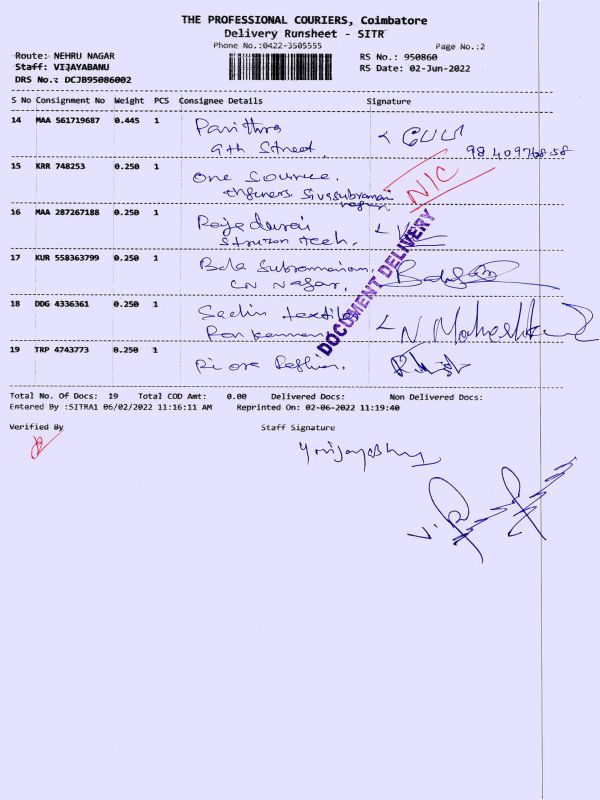 THE PROFESSIONAL COURIERS, Coimbatore
Delivery Runsheet - SITR
Phone No.:0422-3505555 Page No.:2
Route: NEHRU NAGAR RS No.: 950860
Staff: VIJAYABANU RS Date: 02-Jun-2022
DRS No.: DCJB95086002
S No Consignment No Weight PCS Consignee Details Signature
14 MAA 561719687 0.445 1 Pavithra
9th Street.
15 KRR 748253 0.250 1 One Source.
Sivasubraman
nagar
N/C
16 MAA 287267188 0.250 1 Raja durai
17 KUR 558363799 0.250 1 Bala Subramanian,
CN Nagar,
18 DDG 4336361 0.250 1 Sachin textiles
N Maheshkumar
19 TRP 4743773 0.250 1
DOCUMENT DELIVERY
Total No. Of Docs: 19 Total COD Amt: 0.00 Delivered Docs: Non Delivered Docs:
Entered By :SITRA1 06/02/2022 11:16:11 AM Reprinted On: 02-06-2022 11:19:40
Verified By Staff Signature